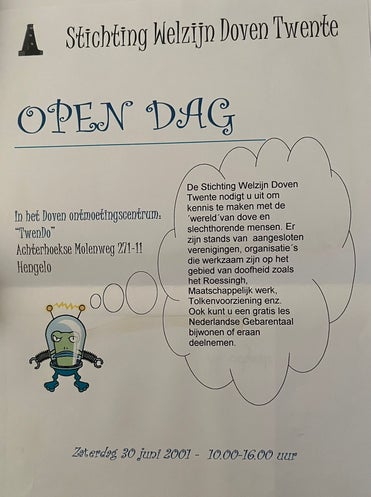 Stichting Welzijn Doven Twente
OPEN DAG
In het Doven ontmoetingscentrum:
"TwenDo"
Achterhoekse Molenweg 271-11
Hengelo
De Stichting Welzijn Doven
Twente nodigt u uit om
kennis te maken met de
´wereld´van dove en
slechthorende mensen. Er
zijn stands van aangesloten
verenigingen, organisatie´s
die werkzaam zijn op het
gebied van doofheid zoals
het Roessingh,
Maatschappelijk werk,
Tolkenvoorziening enz.
Ook kunt u een gratis les
Nederlandse Gebarentaal
bijwonen of eraan
deelnemen.
Zaterdag 30 juni 2001 - 10.00-16.00 uur